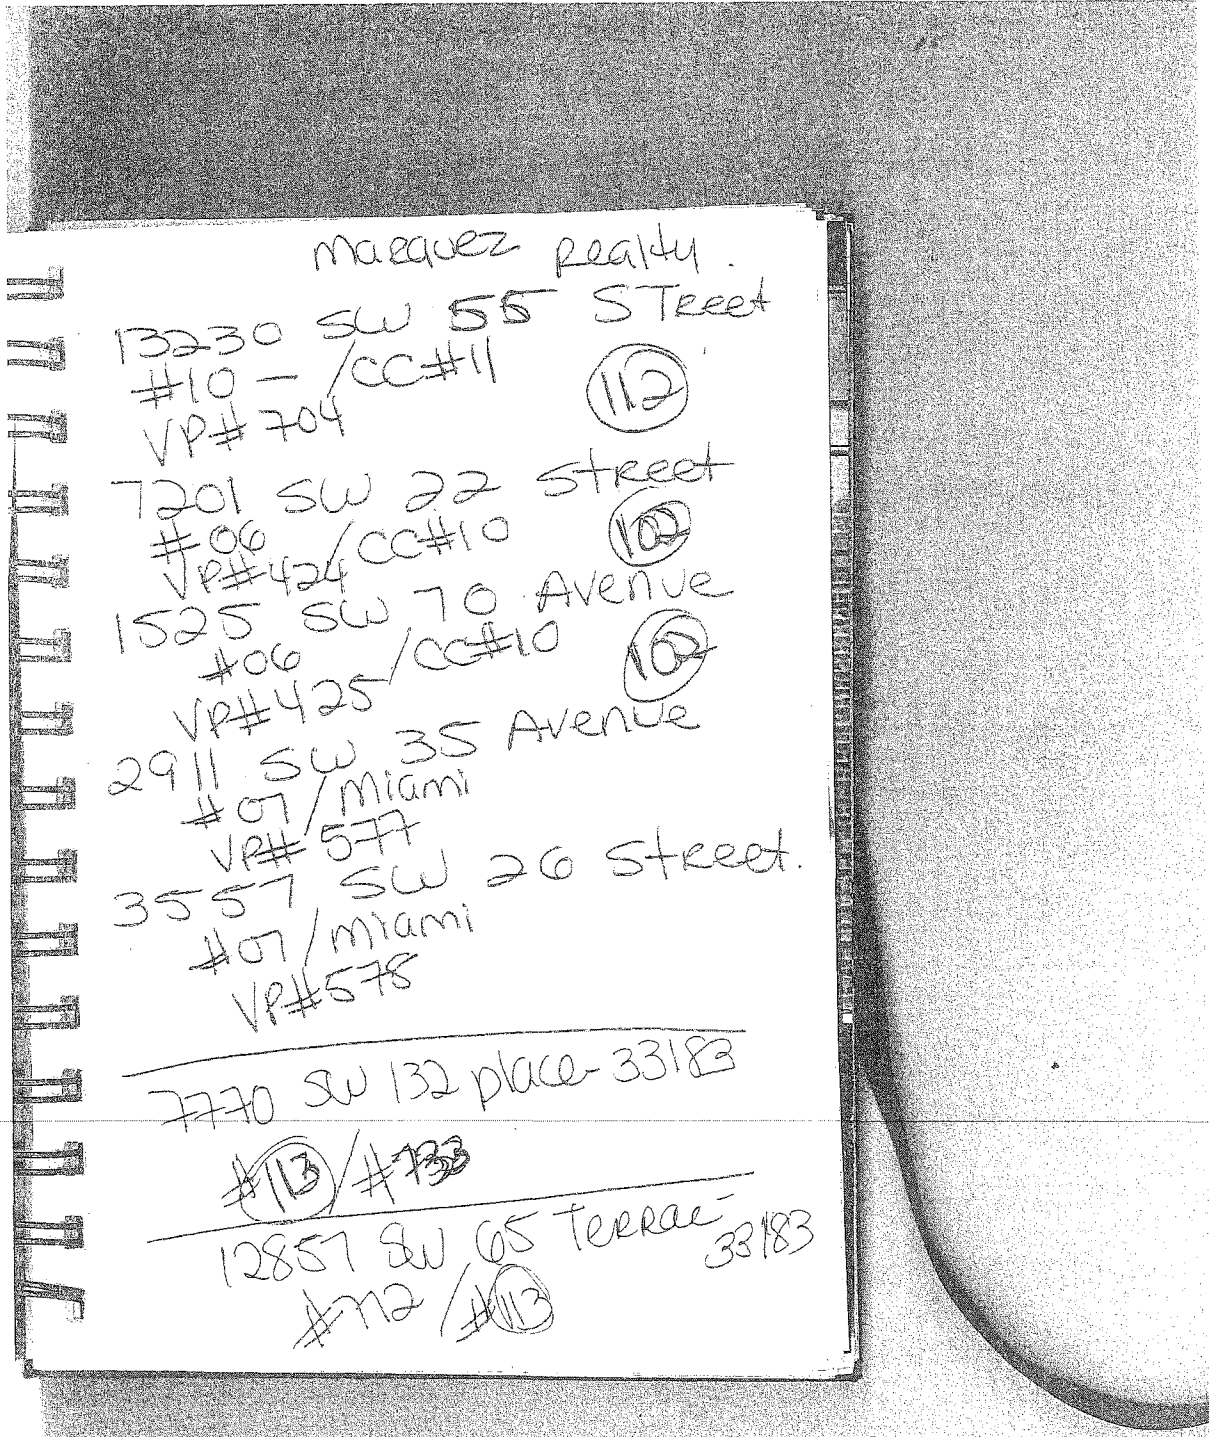 Marquez Realty.
13230 SW 55 Street
#10 - /CC#11 112
VP# 704
7201 SW 22 Street
#06 /CC#10 102
VP#424
1525 SW 70 Avenue
#06 /CC#10 102
VP#425
2911 SW 35 Avenue
#07/Miami
VP# 577
3557 SW 26 Street.
#07/Miami
VP#578
7770 SW 132 place - 33183
#113 / #733
12857 SW 65 Terrac - 33183
#712 / #113